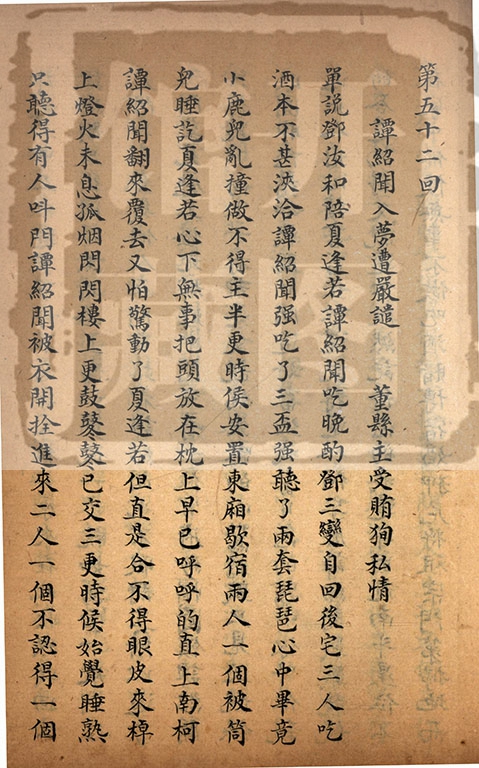 第五十二回
譚紹聞入夢遭嚴譴　董縣主受賄狥私情
單說鄧汝和陪夏逢若譚紹聞吃晚酌鄧三變自回後宅三人吃
酒本不甚浹洽譚紹聞强吃了三盃强聽了兩套琵琶心中畢竟
小鹿兒亂撞做不得主半更時侯安置東廂歇宿兩人一個被筒
兒睡訖夏逢若心下無事把頭放在枕上早已呼呼的直上南柯
譚紹聞翻來覆去又怕驚動了夏逢若但直是合不得眼皮來棹
上燈火未息孤烟閃閃樓上更鼓鼕鼕已交三更時候始覺睡熟
只聽得有人呌門譚紹聞被衣開拴進來二人一個不認得一個